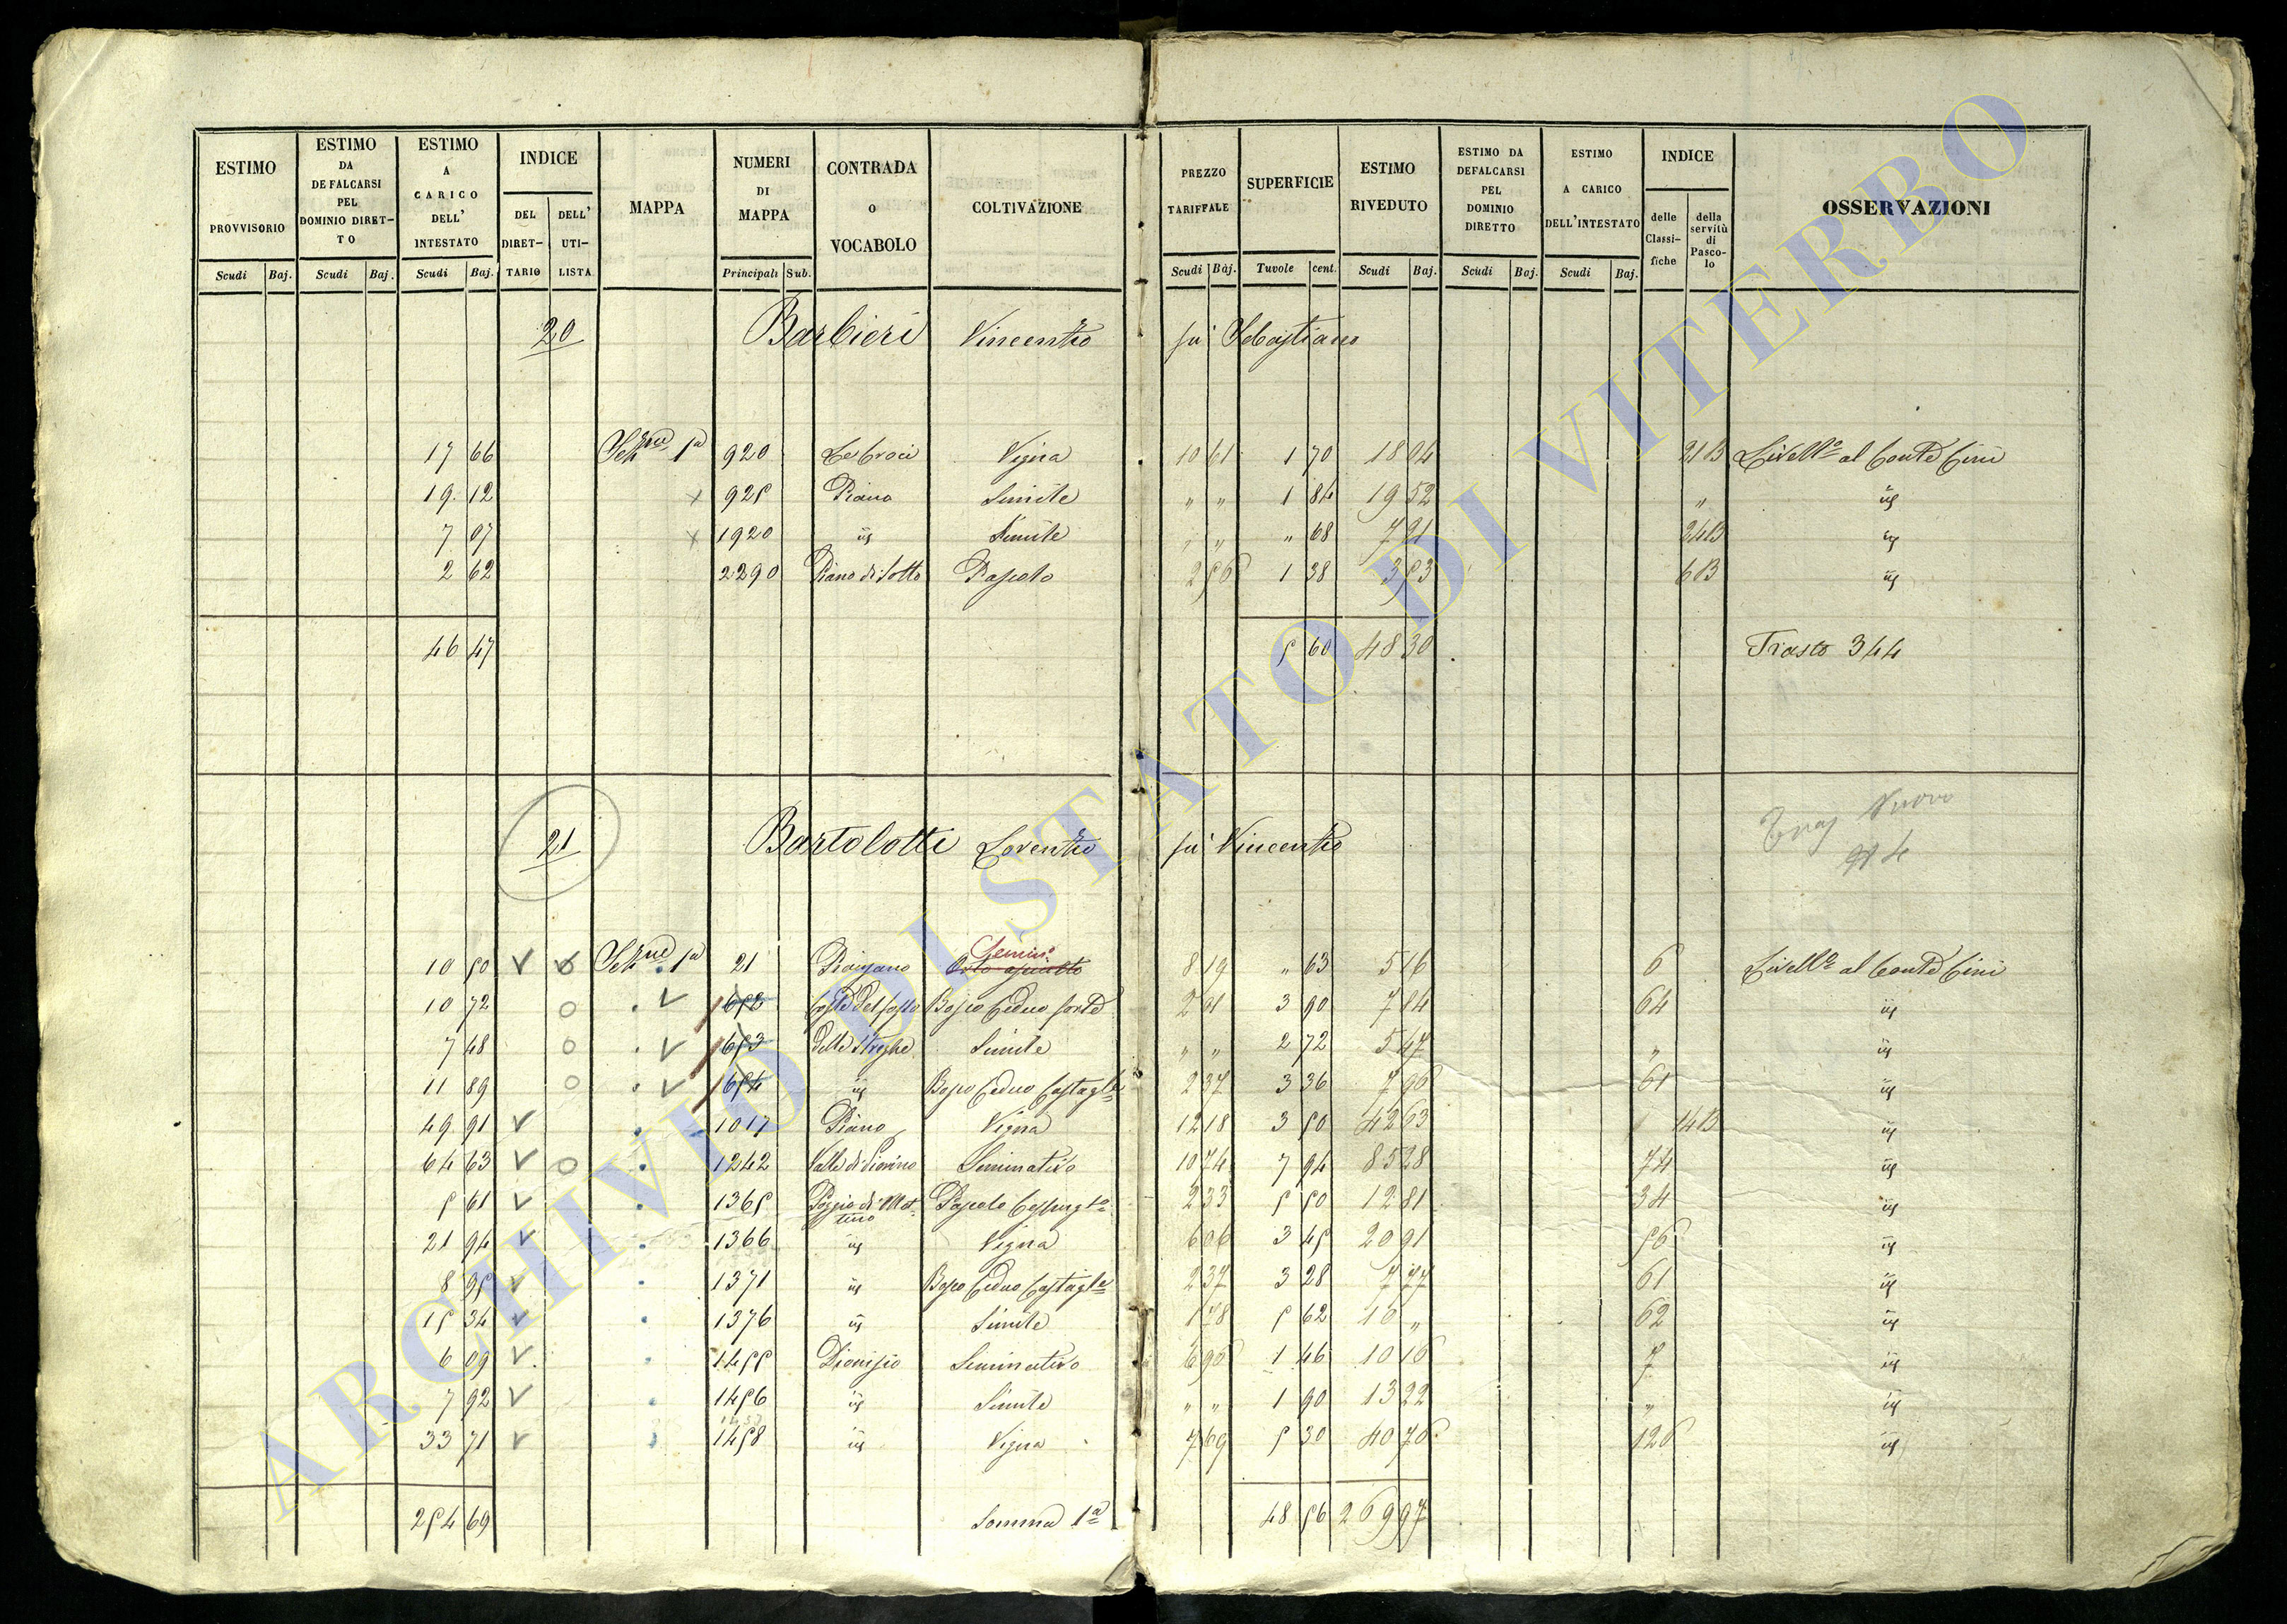 ESTIMO PROVVISORIO Scudi Baj.
ESTIMO DA DEFALCARSI PEL DOMINIO DIRET-TO Scudi Baj.
ESTIMO A CARICO DELL' INTESTATO Scudi Baj.
INDICE DEL DIRET-TARIO DELL' UTI-LISTA
MAPPA
NUMERI DI MAPPA Principali Sub.
CONTRADA o VOCABOLO
COLTIVAZIONE
PREZZO TARIFFALE Scudi Baj.
SUPERFICIE Tuvole cent.
ESTIMO RIVEDUTO Scudi Baj.
ESTIMO DA DEFALCARSI PEL DOMINIO DIRETTO Scudi Baj.
ESTIMO A CARICO DELL'INTESTATO Scudi Baj.
INDICE delle Classi-fiche della servitù di Pasco-lo
OSSERVAZIONI
20 Barbieri Vincenzo fu Sebastiano
17 66 1a 920 Le Croci Vigna 10 61 1 70 18 04 21B Livello al Conte Cini
19. 12 x 925 Piano Simile " " 1 84 19 52 "
7 07 x 1920 Simile " " " 68 7 21 24B
2 62 2290 Piano di Sotto Pascolo 2 56 1 38 3 53 6B
46 47 5 60 48 30 Trasto 344
21 Bartolotti Lorenzo fu Vincenzo
Nuovo
10 50 1a 21 Piansano 8 19 " 63 5 16 6 Livello al Conte Cini
10 72 652 Bosco Ceduo forte 2 01 3 90 7 84 64
7 48 653 delle Streghe Simile " " 2 72 5 47 "
11 89 654 Bosco Ceduo Castagle 2 37 3 36 7 96 61
49 91 1017 Piano Vigna 12 18 3 50 42 63 14B
64 63 1242 Seminativo 10 74 7 94 85 28 74
5 61 1365 Poggio di Mar-tino Pascolo Cespugto 2 33 5 50 12 81 34
21 94 1366 Vigna 6 06 3 45 20 91 56
8 95 1371 Bosco Ceduo Castagle 2 37 3 28 7 77 61
15 34 1376 Simile 1 78 5 62 10 " 62
6 09 1455 Dionisio Seminativo 6 96 1 46 10 16 7
7 92 1456 Simile " " 1 90 13 22 "
33 71 1458 Vigna 7 69 5 30 40 76 126
254 69 Somma 1a 48 56 269 97
ARCHIVIO DI STATO DI VITERBO